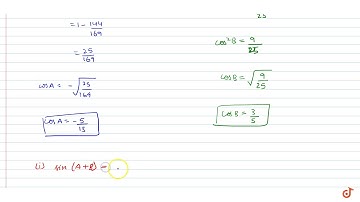 = 1 - 144/169
= 25/169
cos A = -√25/169
cos A = -5/13
25
cos² B = 9/25
cos B = √9/25
cos B = 3/5
(i) sin (A+B) =